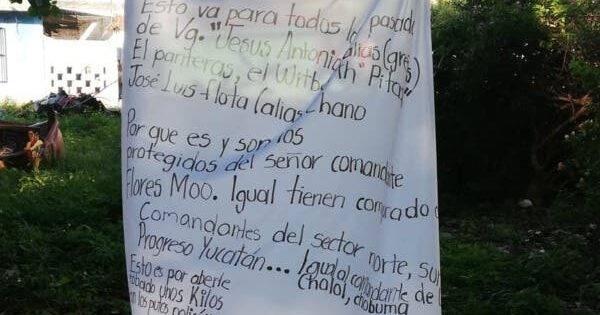 Esto va para todos la pasada
de Vg. "Jesus Antonio alias (gres)
El panteras, el Witb "Pita"
José Luis flota (alias - chano
Por que es y son los
protegidos del señor comandante
Flores Moo. Igual tienen comprado
Comandantes del sector norte, sur
Progreso Yucatán... Igual comandante de
Chalol, chabuma
Esto es por aberle
robado unos Kilos
los putos